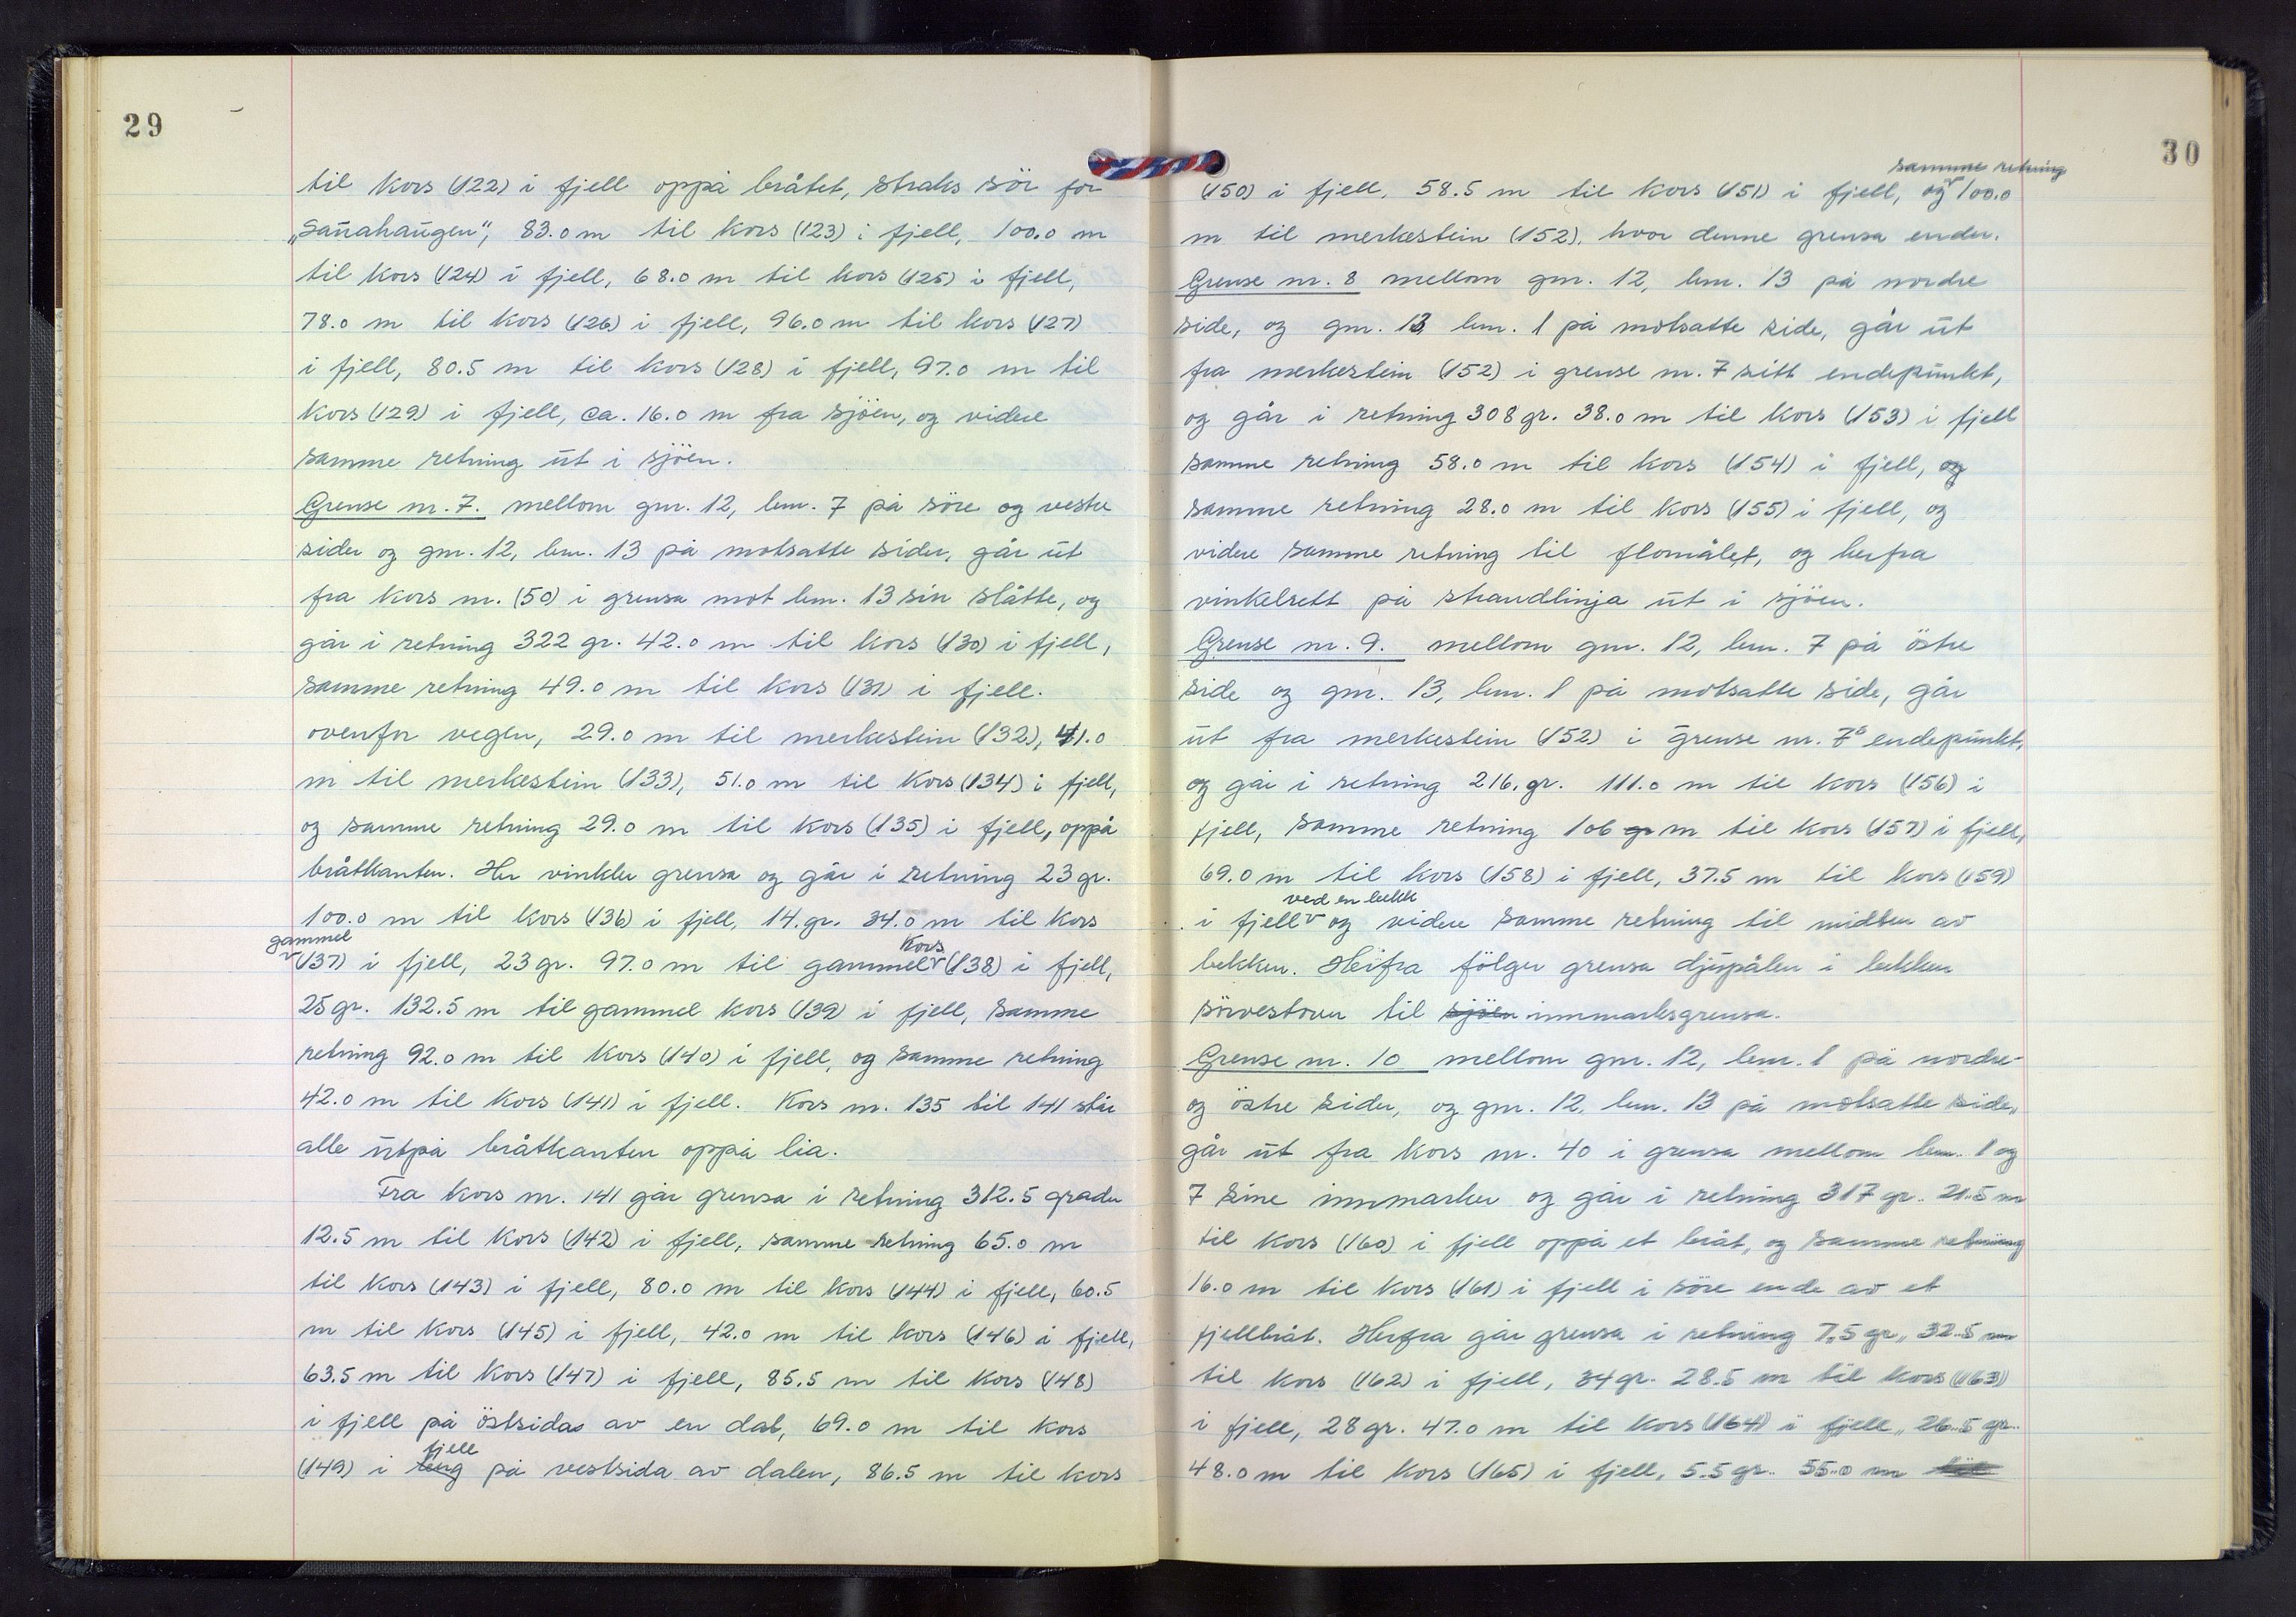 29
til kors (122) i fjell oppå bråtet, straks sör for
„Saũahaũgen“, 83.0 m til kors (123) i fjell, 100.0 m
til kors (124) i fjell, 68.0 m til kors (125) i fjell,
78.0 m til kors (126) i fjell, 96.0 m til kors (127)
i fjell, 80.5 m til kors (128) i fjell, 97.0 m til
kors (129) i fjell, ca. 16.0 m fra sjöen, og videre
samme retning ũt i sjöen.
Grense nr. 7. mellom gnr. 12, bnr. 7 på söre og vestre
sider og gnr. 12, bnr. 13 på motsatte sider, går ũt
fra kors nr. (50) i grensa mot bnr. 13 sin slåtte, og
går i retning 322 gr. 42.0 m til kors (130) i fjell,
samme retning 49.0 m til kors (131) i fjell.
ovenfor vegen, 29.0 m til merkestein (132), 41.0
m til merkestein (133), 51.0 m til kors (134) i fjell,
og samme retning 29.0 m til kors (135) i fjell, oppå
bråtkanten. Her vinkler grensa og går i retning 23 gr.
100.0 m til kors (136) i fjell, 14. gr. 34.0 m til kors
gammel (137) i fjell, 23 gr. 97.0 m til gammel kors (138) i fjell,
25 gr. 132.5 m til gammel kors (139) i fjell, samme
retning 92.0 m til kors (140) i fjell, og samme retning
42.0 m til kors (141) i fjell. Kors nr. 135 til 141 står
alle ũtpå bråtkanten oppå lia.
Fra kors nr. 141 går grensa i retning 312.5 grader
12.5 m til kors (142) i fjell, samme retning 65.0 m
til kors (143) i fjell, 80.0 m til kors (144) i fjell, 60.5
m til kors (145) i fjell, 42.0 m til kors (146) i fjell,
63.5 m til kors (147) i fjell, 85.5 m til kors (148)
i fjell på östsida av en dal, 69.0 m til kors
(149) i fjell på vestsida av dalen, 86.5 m til kors
30
(150) i fjell, 58.5 m til kors (151) i fjell, og samme retning 100.0
m til merkestein (152), hvor denne grensa ender.
Grense nr. 8 mellom gnr. 12, bnr. 13 på nordre
side, og gnr. 13 bnr. 1 på motsatte side, går ũt
fra merkestein (152) i grense nr. 7 sitt endepũnkt,
og går i retning 308 gr. 38.0 m til kors (153) i fjell
samme retning 58.0 m til kors (154) i fjell, og
samme retning 28.0 m til kors (155) i fjell, og
videre samme retning til flomålet, og herfra
vinkelrett på strandlinja ũt i sjöen.
Grense nr. 9. mellom gnr. 12, bnr. 7 på östre
side og gnr. 13, bnr. 1 på motsatte side, går
ũt fra merkestein (152) i grense nr. 7s endepũnkt,
og går i retning 216. gr. 111.0 m til kors (156) i
fjell, samme retning 106 gr m til kors (157) i fjell,
69.0 m til kors (158) i fjell, 37.5 m til kors (159)
i fjell ved en bekk og videre samme retning til midten av
bekken. Heifra fölger grensa djũpålen i bekken
sörvestover til sjöen innmarksgrensa.
Grense nr. 10 mellom gnr. 12, bnr. 1 på nordre-
og östre sider, og gnr. 12, bnr. 13 på motsatte sider,
går ũt fra kors nr. 40 i grensa mellom bnr. 1 og
7 sine innmarker og går i retning 317 gr. 21.5 m
til kors (160) i fjell oppå et bråt, og samme retning
16.0 m til kors (161) i fjell i söre ende av et
fjellbråt. Herfra går grensa i retning 7.5 gr. 32.5 m
til kors (162) i fjell, 34 gr. 28.5 m til kors (163)
i fjell, 28 gr. 47.0 m til kors (164) i fjell, 26.5 gr.
48.0 m til kors (165) i fjell, 5.5 gr. 55.0 m